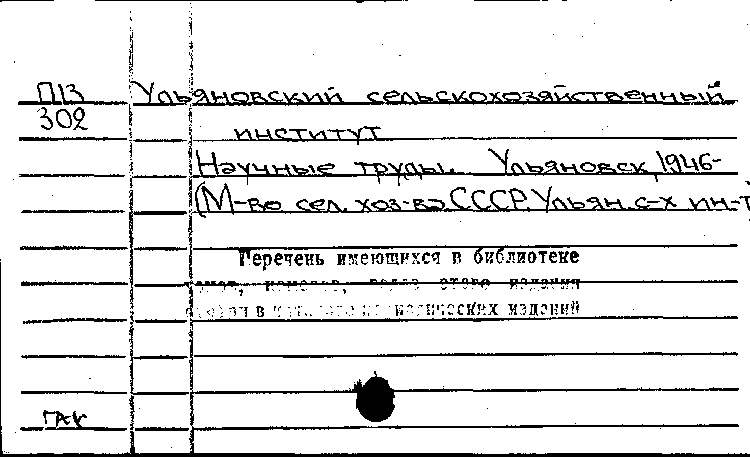 П13 Ульяновский сельскохозяйственный
302
институт
Научные труды. Ульяновск, 1946-
(М-во сел. хоз-ва СССР. Ульян. с-х ин-т
Перечень имеющихся в библиотеке
этого издания
в изданий
ГАК